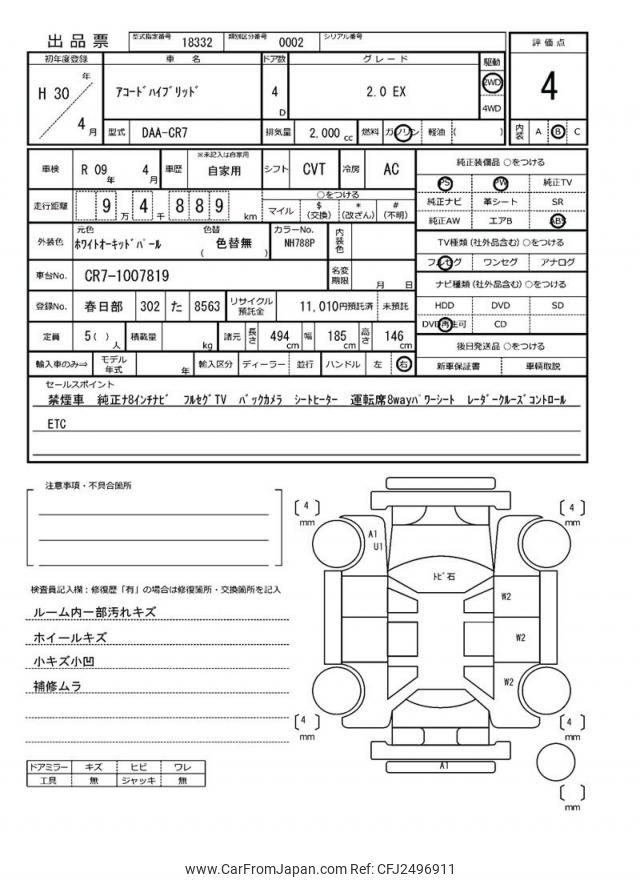 出品票 型式指定番号 18332 類別区分番号 0002 シリアル番号
初年度登録 車名 ドア数 グレード 駆動 評価点
H 30 年 4 月 アコードハイブリッド 4 D 2.0 EX 2WD 4WD 4
型式 DAA-CR7 排気量 2,000 cc 燃料 ガソリン 軽油 ( ) 内装 A B C
車検 R 09 年 4 月 車歴 ※未記入は自家用 自家用 シフト CVT 冷房 AC
走行距離 9 万 4 千 8 8 9 km ○をつける
マイル $ (交換) * (改ざん) # (不明)
外装色 元色 ホワイトオーキッドパール 色替 ( 色替無 ) カラーNo. NH788P 内装色
車台No. CR7-1007819 名変期限 月 日
登録No. 春日部 302 た 8563 リサイクル預託金 11,010円預託済 未預託
定員 5( ) 人 積載量 kg 諸元 長さ 494 cm 幅 185 cm 高さ 146 cm
輸入車のみ⇒ モデル年式 年 輸入区分 ディーラー 並行 ハンドル 左 右
純正装備品 ○をつける
PS PW 純正TV
純正ナビ 革シート SR
純正AW エアB ABS
TV種類 (社外品含む) ○をつける
フルセグ ワンセグ アナログ
ナビ種類 (社外品含む) ○をつける
HDD DVD SD
DVD再生可 CD
後日発送品 ○をつける
新車保証書 車輌取説
セールスポイント
禁煙車 純正ナ8インチナビ フルセグTV バックカメラ シートヒーター 運転席8wayパワーシート レーダークルーズコントロール
ETC
注意事項・不具合箇所
検査員記入欄：修復歴「有」の場合は修復箇所・交換箇所を記入
ルーム内一部汚れキズ
ホイールキズ
小キズ小凹
補修ムラ
ドアミラー キズ ヒビ ワレ
工具 無 ジャッキ 無
[ 4 ] mm
[ 4 ] mm
A1
U1
トビ石
W2
W2
W2
[ 4 ] mm
[ 4 ] mm
A1
[ ] mm
www.CarFromJapan.com Ref: CFJ2496911